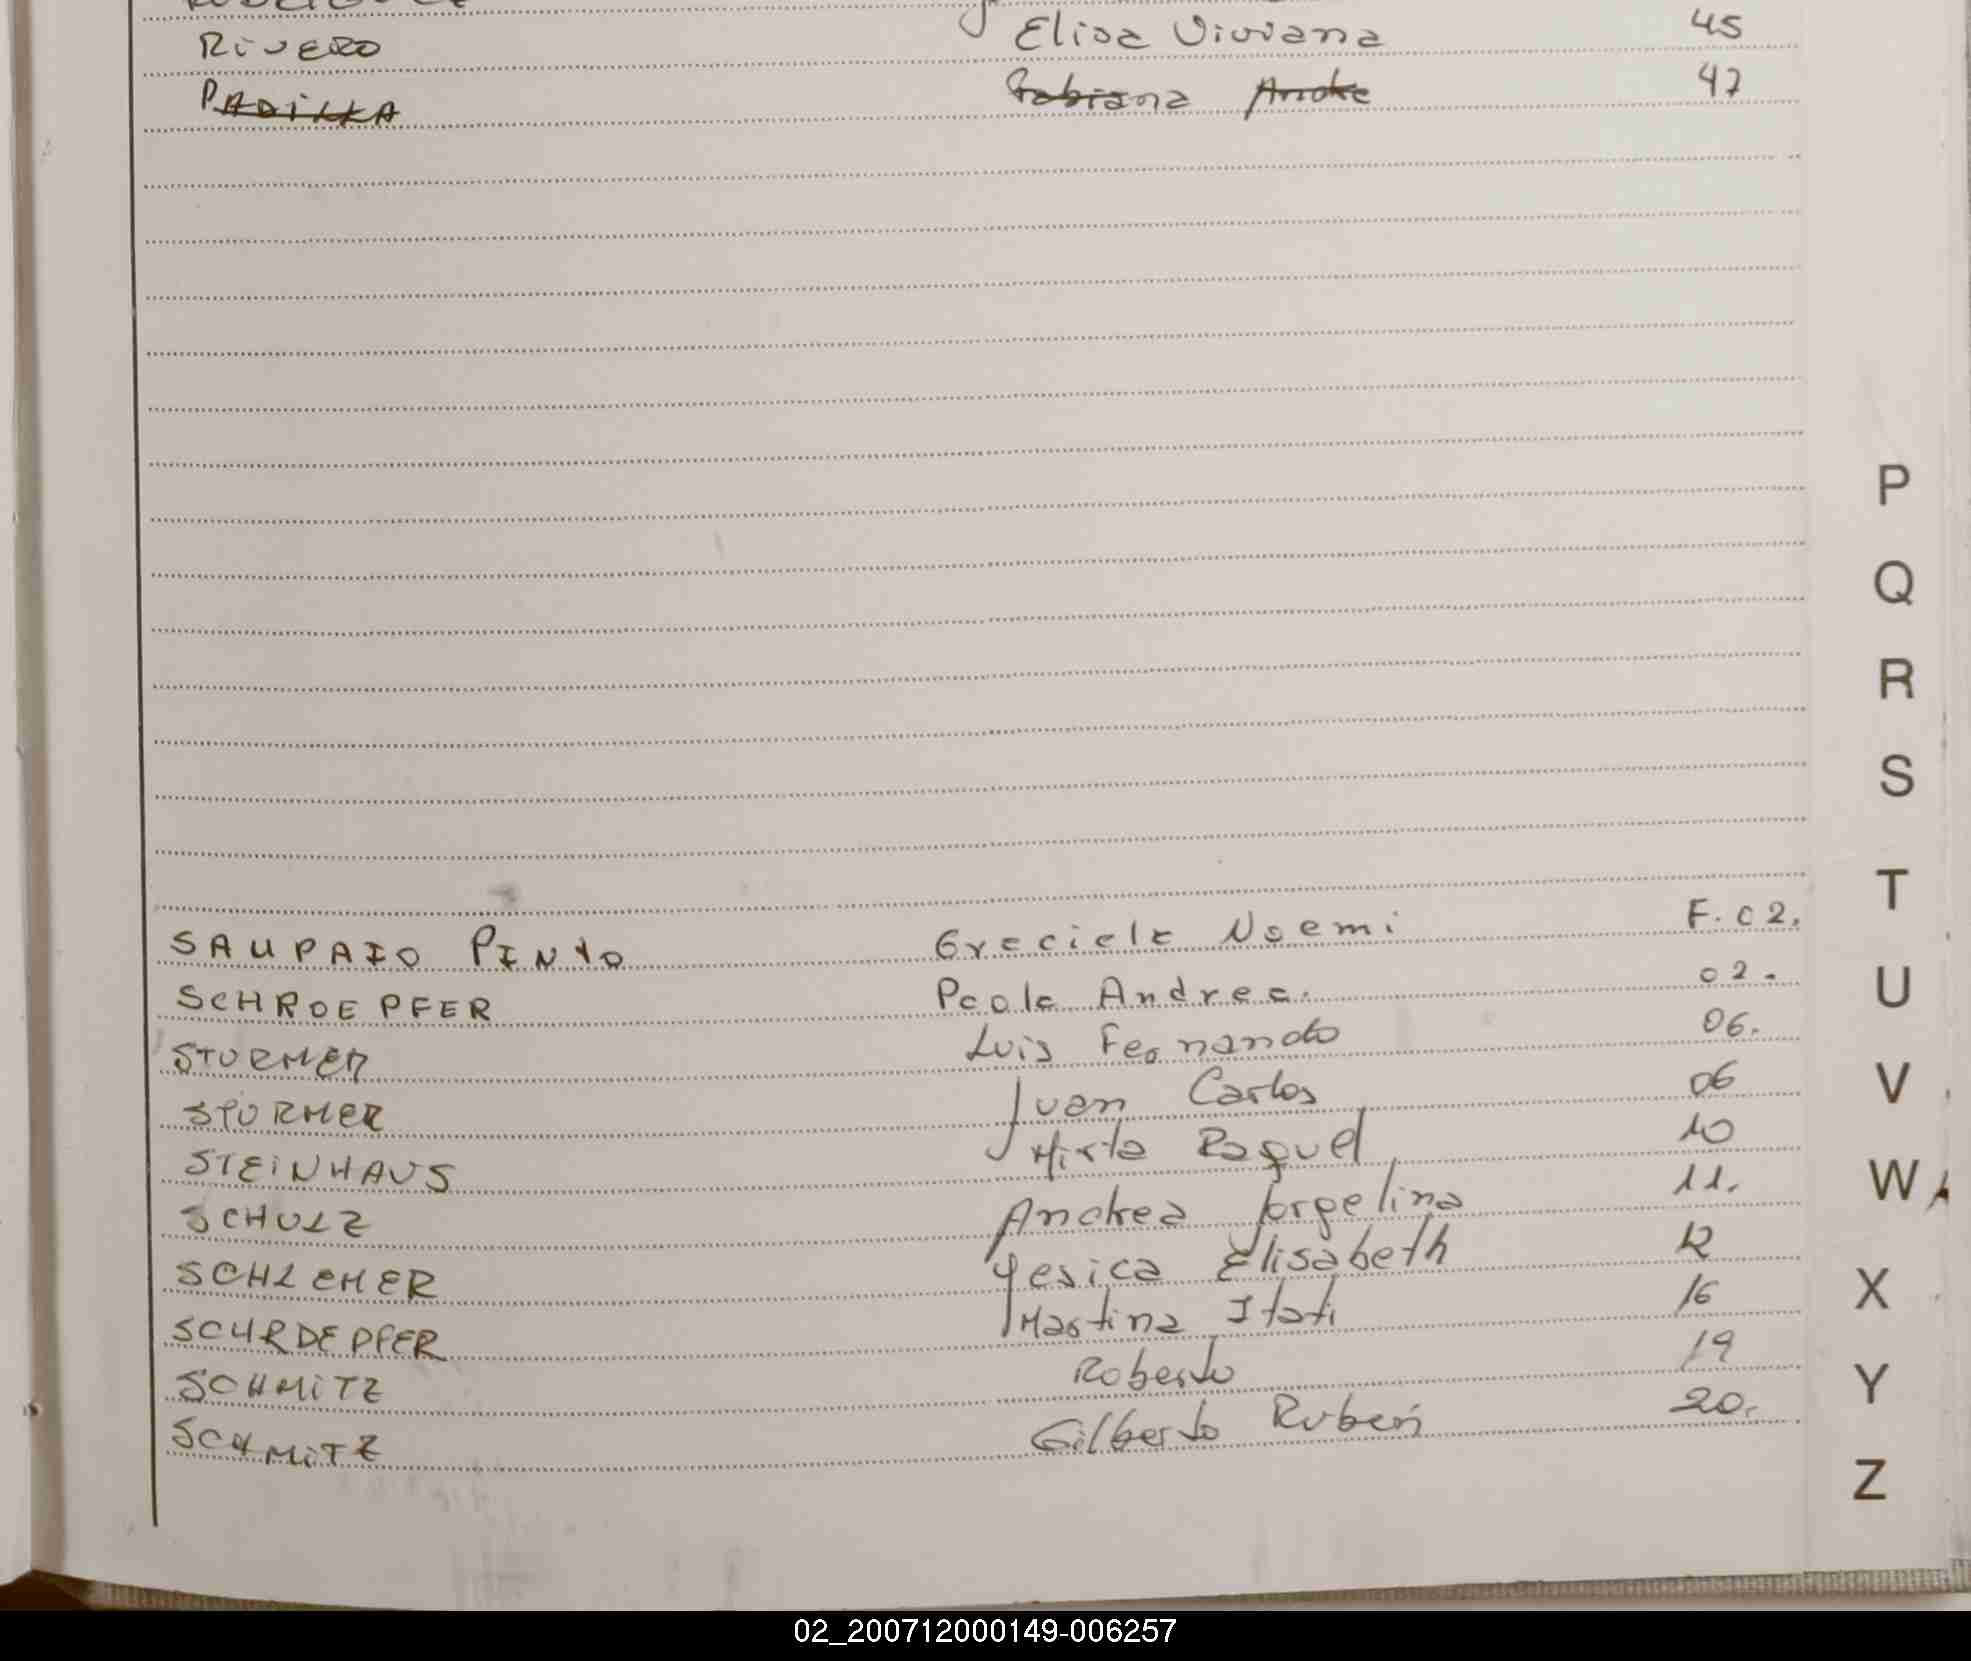 RIVERO Elisa Viviana 45
PADILLA Fabiana Andre 47
SAUPAIO PINTO Graciela Noemi F. 02.
SCHROEPFER Paola Andrea. 02.
STURMER Luis Fernando 06.
STURMER Juan Carlos 06
STEINHAUS Mirta Raquel 10
SCHULZ Andrea Jorgelina 11.
SCHLEMER Yesica Elisabeth 12
SCHROEPFER Martina Itati 16
SCHMITZ Roberto 19
SCHMITZ Gilberto Rubén 20.
P
Q
R
S
T
U
V
W
X
Y
Z
02_200712000149-006257